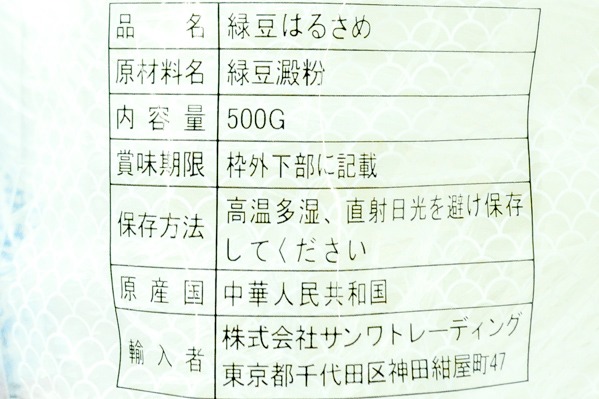 品名 緑豆はるさめ
原材料名 緑豆澱粉
内容量 500G
賞味期限 枠外下部に記載
保存方法 高温多湿、直射日光を避け保存
してください
原産国 中華人民共和国
輸入者 株式会社サンワトレーディング
東京都千代田区神田紺屋町47